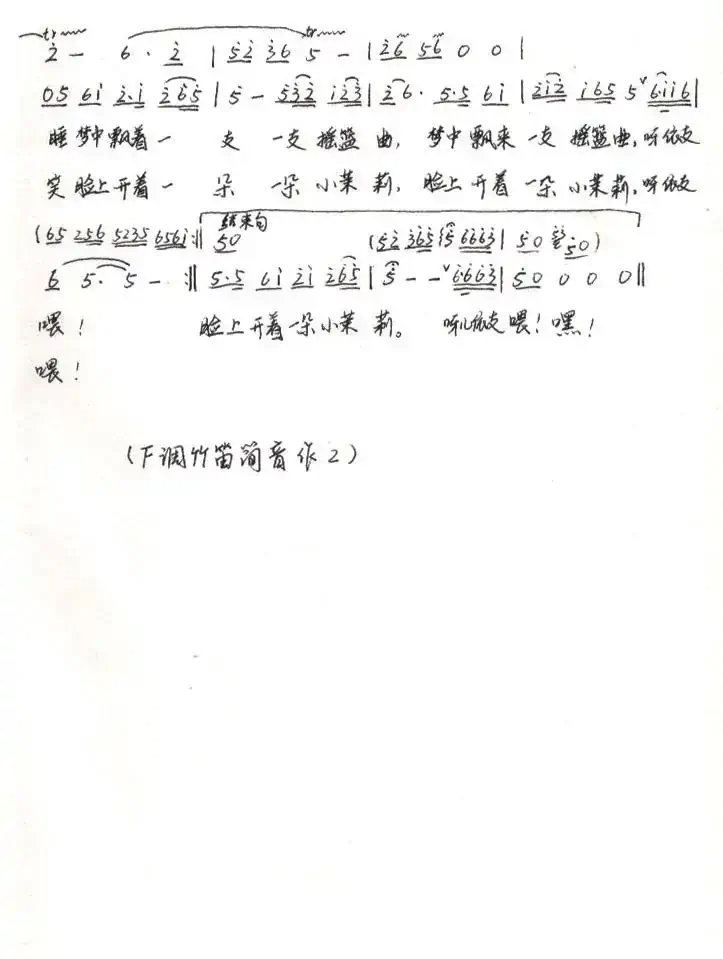 tr tr
2̇ — 6 · 2̇ | 5̇2̇ 3̇6 5 — | 2̇6̇ 56̇ 0 0 |
05 61̇ 2̇·1̇ 2̇6̇5 | 5 — 5̇3̇2̇ 1̇2̇3̇ | 2̇6· 5·5 61̇ | 2̇1̇2̇ 1̇65 5 ᵛ 61̇1̇6 |
睡梦中飘着一 支 一支摇篮 曲, 梦中飘来一支 摇篮曲,呀依支
笑脸上开着一 朵 一朵小茉 莉, 脸上开着一朵小茉莉,呀依支
结束句
(65 256 5235 6561̇ :‖ 50 (5̇2̇ 3̇6̇5̇ 5̇ 6663̇ | 5̇0 5̇0)
6 5· 5 — :‖ 5·5 61̇ 2̇1̇ 2̇65 | 5̇ — — ᵛ 6663̇ | 5̇0 0 0 0 ‖
喂! 脸上开着一朵小茉 莉。 呀儿依支喂!嘿!
喂!
(下调竹笛简音作2)